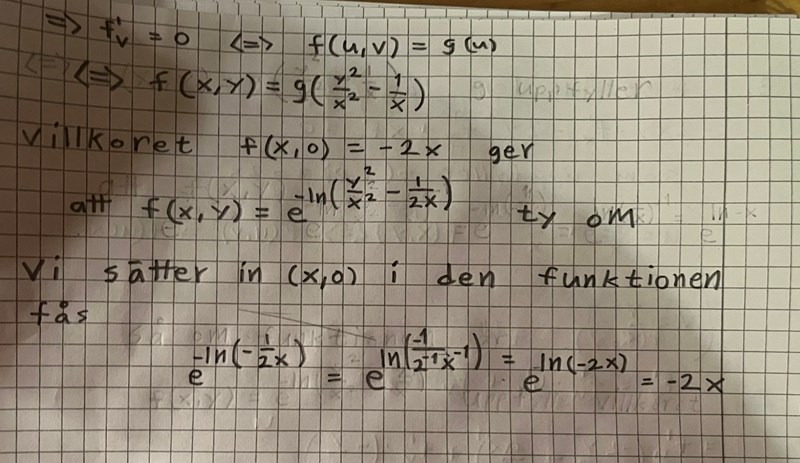 => f'v = 0 <=> f(u,v) = g(u)
<=> f(x,y) = g(y²/x² - 1/x)
villkoret f(x,0) = -2x ger
att f(x,y) = e^-ln(y²/x² - 1/2x) ty om
vi sätter in (x,0) i den funktionen
fås
e^-ln(-1/2x) = e^ln(-1/2⁻¹x⁻¹) = e^ln(-2x) = -2x